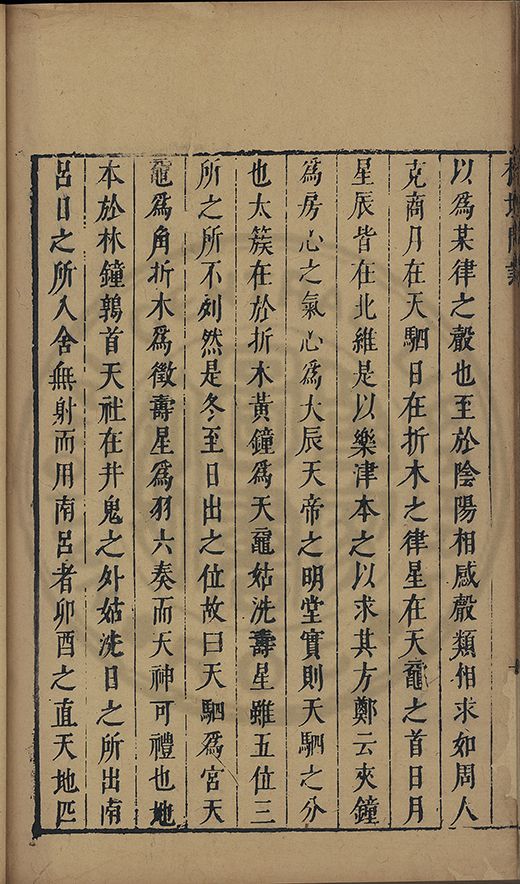 以爲某律之聲也至於陰陽相感聲類相求如周人
克商月在天駟日在折木之律星在天黿之首日月
星辰皆在北維是以樂津本之以求其方鄭云夾鐘
爲房心之氣心爲大辰天帝之明堂實則天駟之分
也太簇在於折木黃鐘爲天黿姑洗壽星雖五位三
所之所不列然是冬至日出之位故曰天駟爲宮天
黿爲角折木爲徵壽星爲羽六奏而天神可禮也地
本於林鐘鶉首天社在井鬼之外姑洗日之所出南
呂日之所入舍無射而用南呂者卯酉之直天地匹